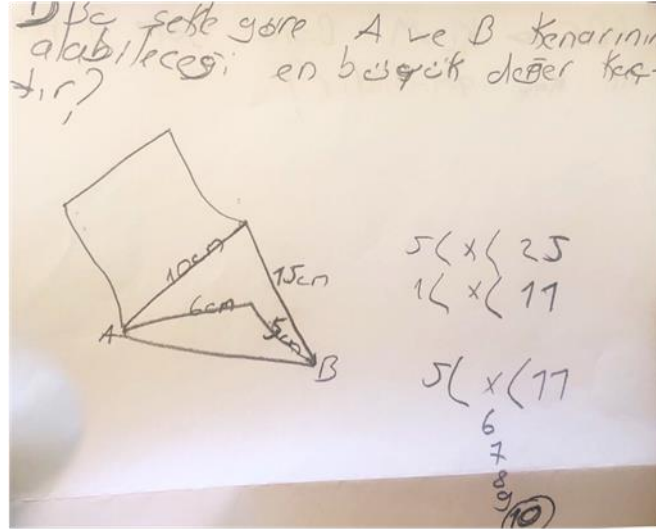 1) Bu şekle göre A ve B kenarının
alabileceği en büyük değer kaç-
tır?
10cm
15cm
6cm
5cm
A
B
5 < x < 25
1 < x < 11
5 < x < 11
6
7
8
9
10